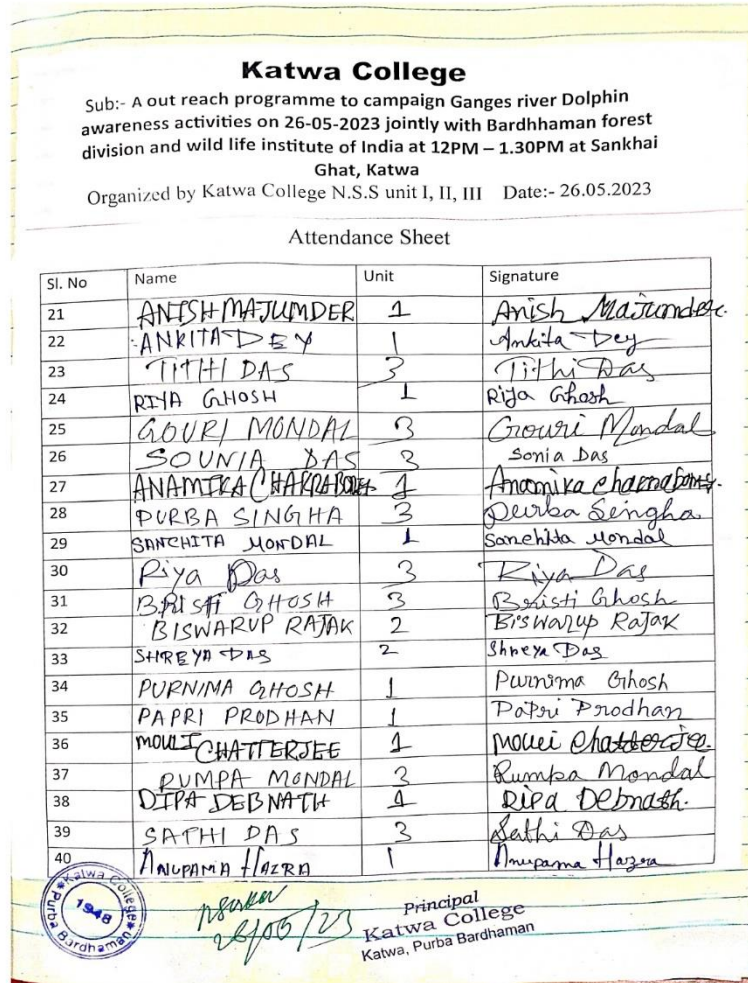 Katwa College
Sub:- A out reach programme to campaign Ganges river Dolphin
awareness activities on 26-05-2023 jointly with Bardhhaman forest
division and wild life institute of India at 12PM – 1.30PM at Sankhai
Ghat, Katwa
Organized by Katwa College N.S.S unit I, II, III Date:- 26.05.2023
Attendance Sheet
Sl. No Name Unit Signature
21 ANISH MAJUMDER 1 Anish Majumder.
22 ANKITA DEY 1 Ankita Dey
23 TITHI DAS 3 Tithi Das
24 RIYA GHOSH 1 Riya Ghosh
25 GOURI MONDAL 3 Gouri Mondal
26 SOUNIA DAS 3 Sonia Das
27 ANAMIKA CHAKRABORTY 1 Anamika Chakraborty.
28 PURBA SINGHA 3 Purba Singha
29 SANCHITA MONDAL 1 Sanchita Mondal
30 Riya Das 3 Riya Das
31 BRISTI GHOSH 3 Bristi Ghosh
32 BISWARUP RAJAK 2 Biswarup Rajak
33 SHREYA DAS 2 Shreya Das
34 PURNIMA GHOSH 1 Purnima Ghosh
35 PAPRI PRODHAN 1 Papri Prodhan
36 MOULI CHATTERJEE 1 Mouli Chatterjee.
37 RUMPA MONDAL 3 Rumpa Mondal
38 DIPA DEBNATH 1 Dipa Debnath.
39 SATHI DAS 3 Sathi Das
40 ANUPAMA HAZRA 1 Anupama Hazra
Katwa College
1948
Purba Bardhaman
26/05/23
Principal
Katwa College
Katwa, Purba Bardhaman